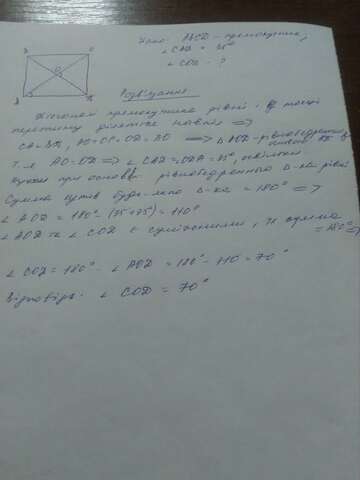 Дано: ABCD - прямокутник,
∠CAD = 35°
∠COD - ?
Розв'язання
Діагоналі прямокутника рівні і в точці
перетину діляться навпіл =>
CA=BD, AO=OC=OD=BO => ΔAOD - рівнобедрений
т.я AO=OD => ∠CAD=∠ODA=35°, оскільки
кути при основі рівнобедренного Δ-ка рівні
Сумма кутів будь-якого Δ-ка = 180° =>
∠AOD = 180° - (35+35) = 110°
∠AOD та ∠COD є суміжними, їх сумма
= 180° =>
∠COD = 180° - ∠AOD = 180° - 110° = 70°
Відповідь: ∠COD = 70°